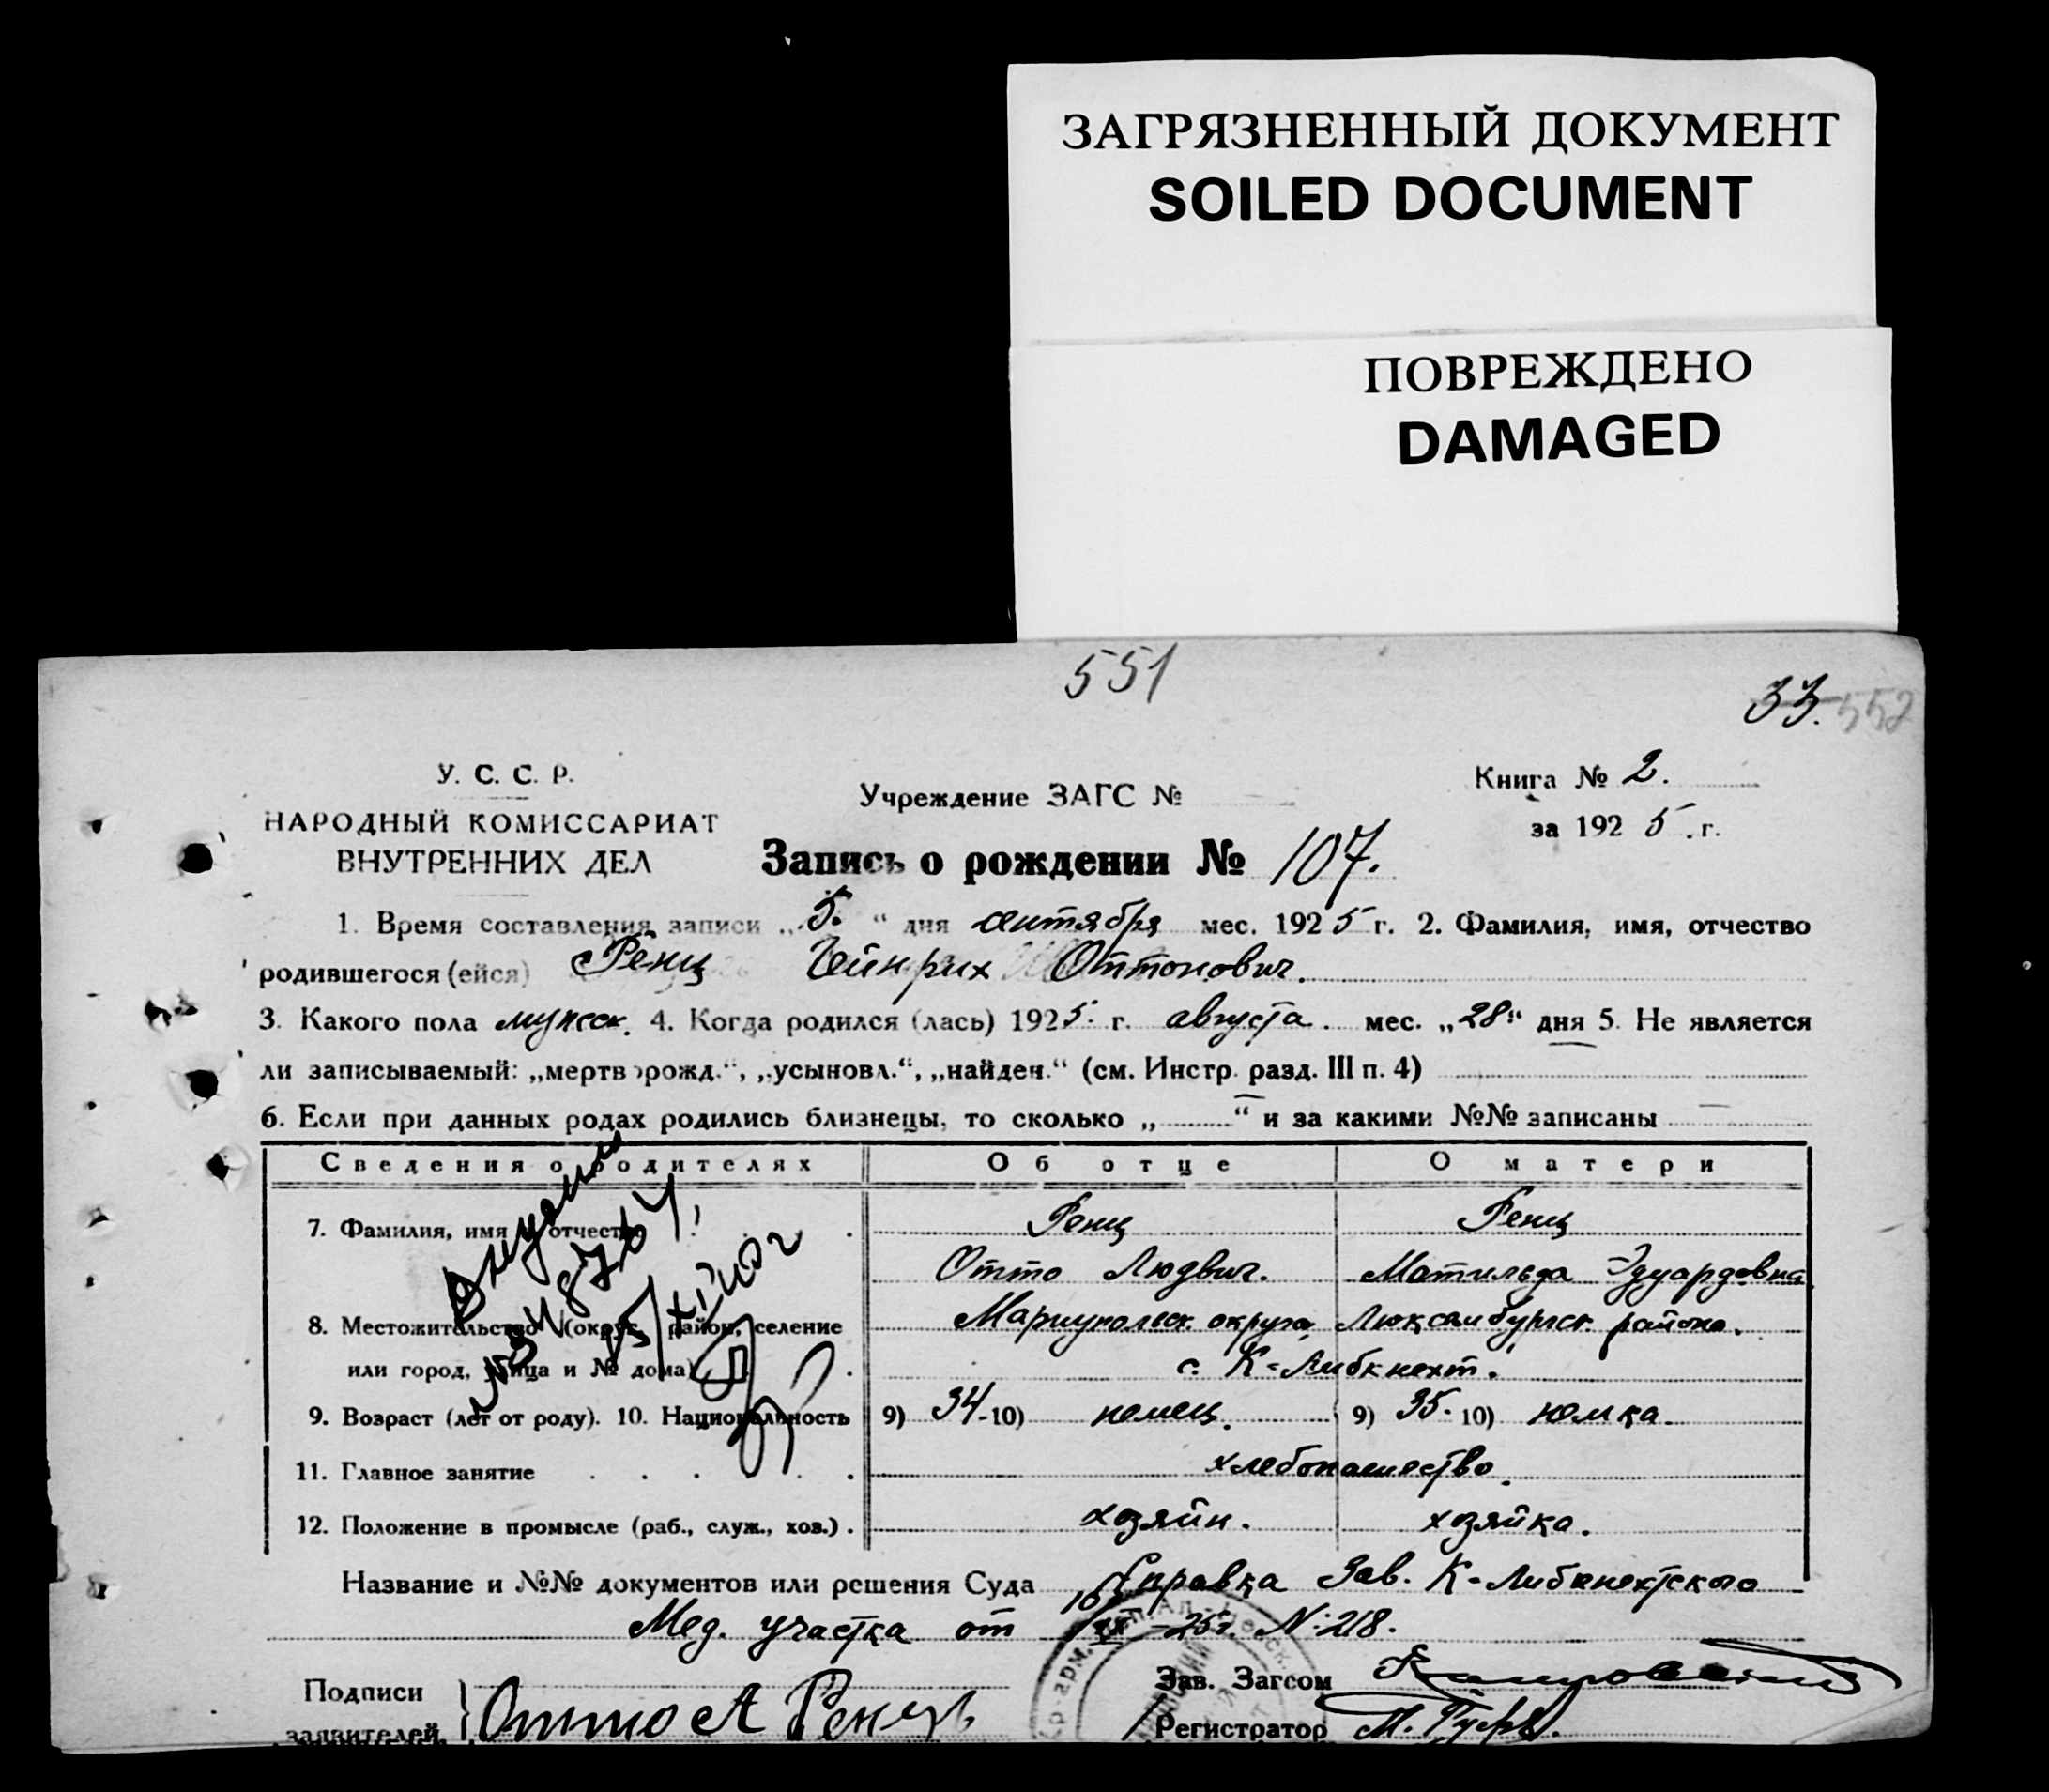 ЗАГРЯЗНЕННЫЙ ДОКУМЕНТ
SOILED DOCUMENT
ПОВРЕЖДЕНО
DAMAGED
551
33. 552
У. С. С. Р.
НАРОДНЫЙ КОМИССАРИАТ
ВНУТРЕННИХ ДЕЛ
Учреждение ЗАГС №
Книга № 2.
за 1925. г.
Запись о рождении № 107.
1. Время составления записи „5.“ дня сентября мес. 1925 г. 2. Фамилия, имя, отчество
родившегося (ейся) Ренц Гейнрих Оттонович.
3. Какого пола мужск. 4. Когда родился (лась) 1925. г. августа мес. „28“ дня 5. Не является
ли записываемый: „мертворожд.“, „усыновл.“, „найден.“ (см. Инстр. разд. III п. 4) —
6. Если при данных родах родились близнецы, то сколько „—“ и за какими №№ записаны —
Сведения о родителях Об отце О матери
7. Фамилия, имя отчество Ренц Ренц
Отто Людвиг. Матильда Эдуардовна
8. Местожительство (округ, район, селение Мариупольск. округа, Люксембургск. района.
или город, улица и № дома) с. К-Либкнехт.
9. Возраст (лет от роду). 10. Национальность 9) 34-10) немец. 9) 35. 10) немка.
11. Главное занятие хлебопашество.
12. Положение в промысле (раб., служ., хоз.) хозяин. хозяйка.
Название и №№ документов или решения Суда Справка Зав. К-Либкнехтского
Мед. участка от 25г. №218.
Подписи
заявителей Отто А Ренцъ
Зав. Загсом
Регистратор